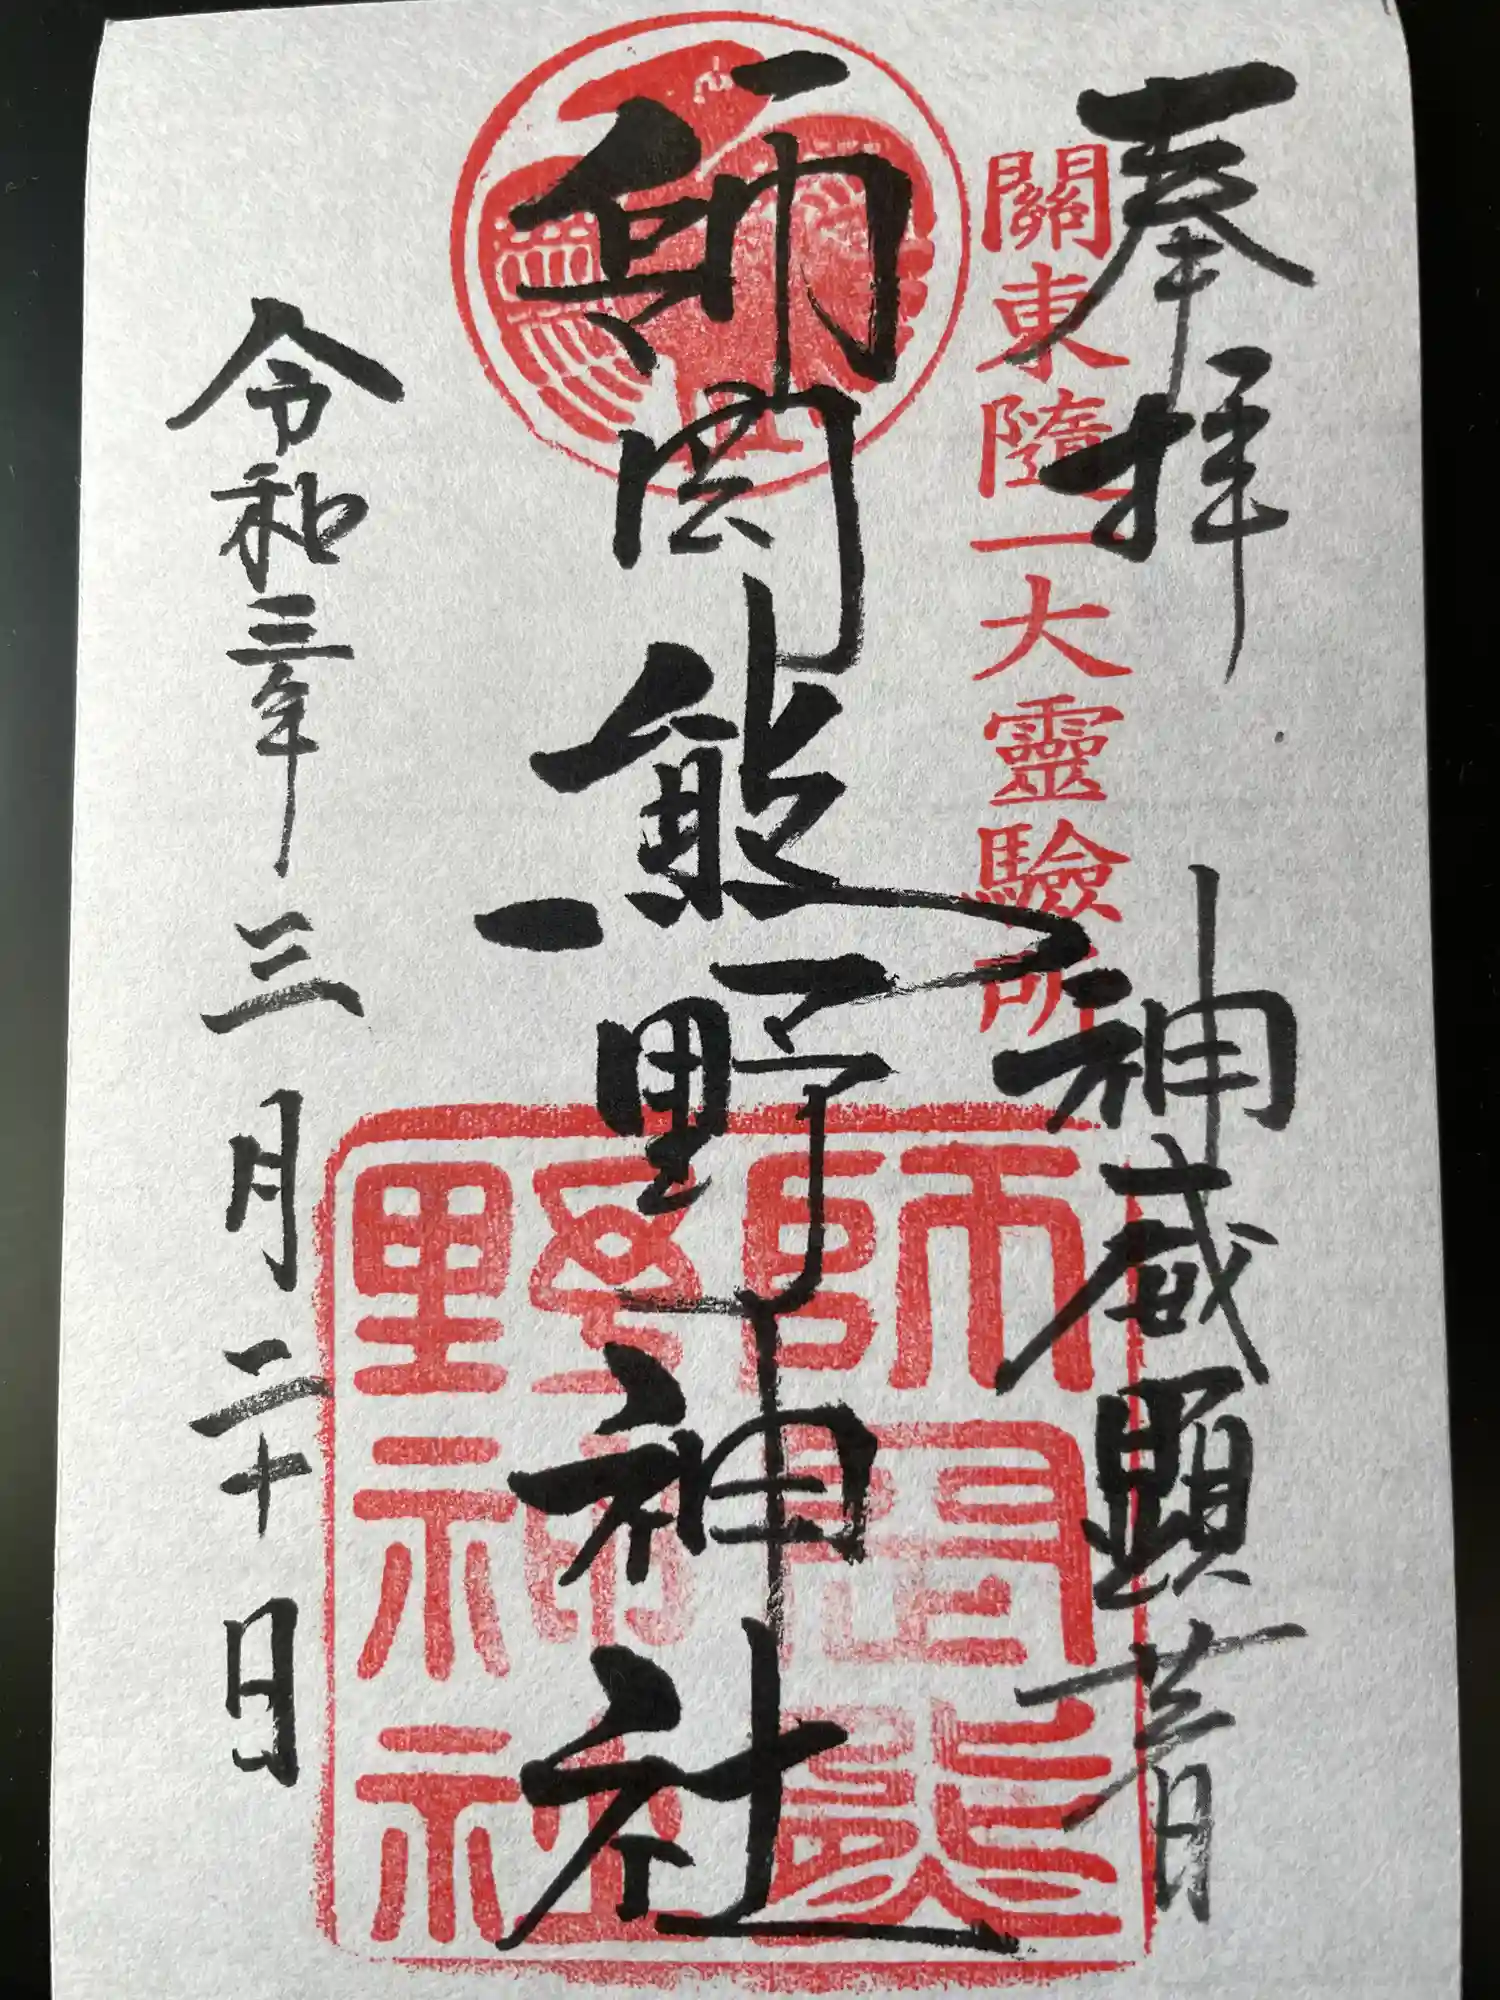 奉拝　神威顕著
關東隨一大靈驗所
師岡熊野神社
令和三年三月二十日
師岡熊
野神社